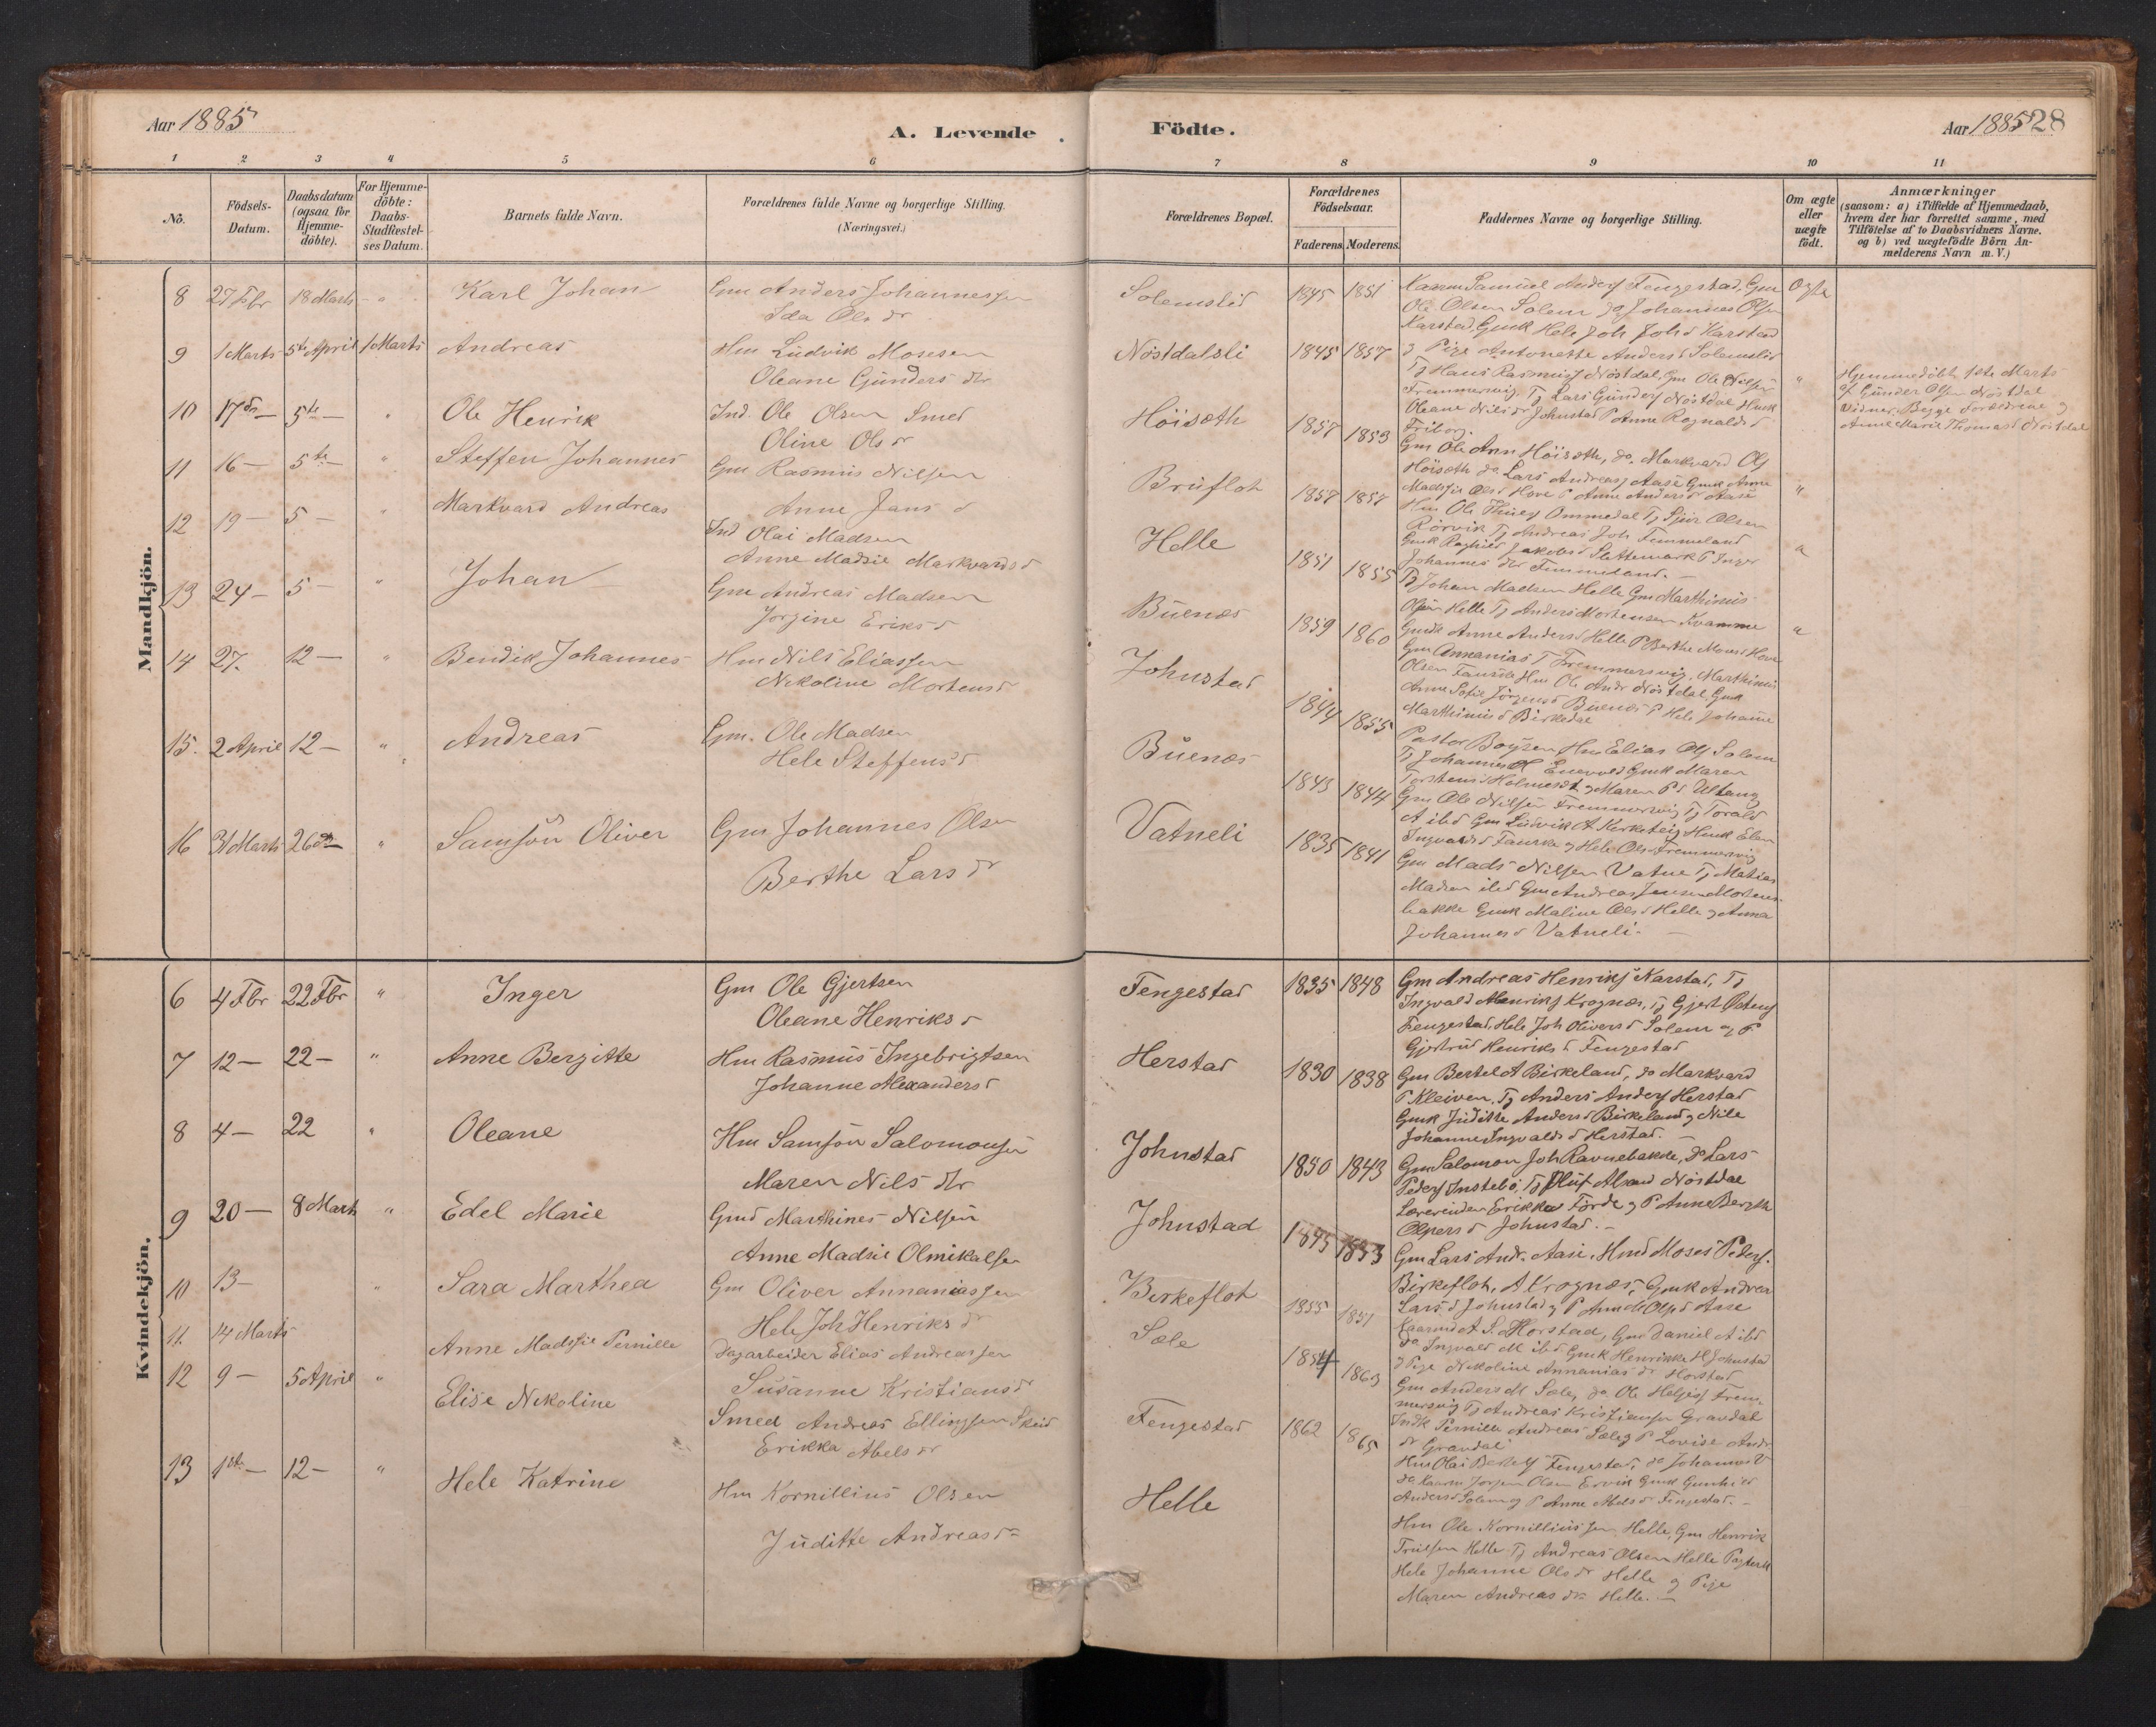 Aar 1885
A. Levende
1 2 3 4 5 6
Nò. Födsels-Datum. Daabsdatum (ogsaa for Hjemme-döbte). For Hjemme-döbte: Daabs-Stadfæstel-ses Datum. Barnets fulde Navn. Forældrenes fulde Navne og borgerlige Stilling. (Næringsvei.)
Mandkjön.
8 27 Fbr 18 Marts " Karl Johan Gm Anders Johannessen
Ida Ols dr
9 1 Marts 5te April 1 Marts Andreas Hm Ludvik Mosesen
Oleane Gunders dtr
10 17de — 5te — " Ole Henrik Ind. Ole Olsen Smed
Oline Ols dr
11 16 — 5te — " Steffen Johannes Gm Rasmus Nilsen
Anne Jans d
12 19 — 5 — " Markvard Andreas Ind Olai Madsen
Anne Madsie Markvards d
13 24 — 5 — " Johan Gm Andreas Madsen
Jorgine Eriks d
14 27. 12 — " Bendik Johannes Hm Nils Eliassen
Nikoline Mortens d
15. 2 April 12 — " Andreas Gm. Ole Madsen
Hele Steffens d
16 31 Marts 26de " Samson Oliver Gm Johannes Olsen
Berthe Lars dr
Kvindekjön.
6 4 Fbr 22 Fbr " Inger Gm Ole Gjertsen
Oleane Henriks d
7 12 — 22 — " Anne Bergitte Hm Rasmus Ingebrigtsen
Johanne Alexanders d
8 4 — 22 " Oleane Hm Samson Salomonsen
Maren Nils dtr
9 20 — 8 Marts " Edel Marie Gmd Marthines Nilsen
Anne Madsie Olmikalsen
10 13 — " Sara Marthea Gm Oliver Annaniassen
Hele Joh Henriks dr
11. 14 Marts Anne Madssie Pernille Dagarbeider Elias Andreassen
Susanne Kristians dr
12 9 — 5 April " Elise Nikoline Smed Andreas Ellingsen Skeid
Erikka Abels dr
13 1ste — 12 — " Hele Katrine Hm Kornillius Olsen
Juditte Andreas dr
Födte.
Aar 1885 28
7 8 9 10 11
Forældrenes Bopæl. Forældrenes Födselsaar. Faderens Moderens. Faddernes Navne og borgerlige Stilling. Om ægte eller uægte födt. Anmærkninger (saasom: a) i Tilfælde af Hjemmedaab, hvem der har forrettet samme, med Tilföielse af to Daabsvidners Navne. og b) ved uægtefödte Börn An-melderens Navn m. V.)
Solemslid 1845 1851 Samuel Anders Fengestad, Gm Ægte
Ole Olsen Solem do Johannes Olsen
Karstad, Gmk Hele Joh Johs d Karstad
Nöstdalsli 1845 1857 & Pige Antonette Anders d Solemslid
Tj Hans Rasmus Nöstdal, Gm Ole Nilsen "
Fremmersvig, Tj Lars Gunders Nöstdal Hmk
Oleane Nils dr Johnstad P Anne Ragnalds d
Friborg.
Hjemmedöbt 1ste Marts
af Gunder Olsen Nöstdal
Vidner: Begge Forældrene og
Anne Marie Thomas d Nöstdal
Höiseth 1857 1853 Gm Ole Höiseth, do. Markvard Ols
Höiseth do Lars Andreas Aase Gmk Anne
Madssie Ols d Hove P Anne Anders d Aase "
Brufloh 1857 1857 Hm Ole Ommedal Tj Sjur Olsen
Rörvik Tj Andreas Joh Femmeland
Gmk Ragnild Jakobs d Slettemark P Inger
Johannes dtr Femmeland. — "
Helle 1851 1855 Tj Johan Madsen Helle Gm Marthinus
Olsen Helle Tj Anders Mortensen Kvamme
Gmk Anne Anders d Helle P Berthe Hove "
Buenæs 1859 1860 Gm Annanias T Fremmersvig, Marthinus
Olsen Fauske Hm Ole Andr Nöstdal, Gmk
Anne Sofie Jörgens d Buenæs P Hele Johanne
Marthinus d Birkedal
Johnstad 1844 1855 Pastor Boysen Hm Elias Ols Solem
Tj Johannes Enevold Gmk Maren
Torstens d og Maren P d
Buenæs 1843 1844 Gm Ole Nilsen Fremmersvig Tj Torald
A ibd Gm Ludvik A Kirketeig Hmk Elen
Ingvalds d Fauske og Hele Ols d Fremmersvig
Vatneli 1835 1841 Gm Mads Nilsen Vatne Tj Matias
Madsen ibd Gm Andreas Jensen Mortens-
bakke Gmk Maline Ols d Helle og Anna
Johannes d Vatneli. —
Fengestad 1835 1848 Gm Andreas Henriks Karstad, Tj
Ingvald Henriks Krognæs, Tj Gjert
Fengestad, Hele Joh Olivers d Solem og P
Gjertrud Henriks d Fengestad
Herstad 1830 1838 Gm Bertel A Birkeland, do Markvard
P Kleiven. Tj Anders Anders Herstad
Gmk Juditte Anders d Birkeland og Nile
Johanne Ingvalds d Herstad. —
Johnstad 1850 1843 Gm Salomon Joh Ravnebakke, do Lars
Peders Instebö, Tj Oluf Nöstdal
Lærerinden Erikka Förde og P Anne Bergitte
Espers d Johnstad. —
Johnstad 1845 1853 Gm Lars Andr. Aase, Hmd Moses Peders.
Birkefloh, A Krognæs, Gmk Andrea
Lars d Johnstad og P Anne M Ols d Aase
Birkefloh 1855 1851 A S. Horstad, Gm Daniel A ibd
do Ingvald M ibd Gmk Henrikke H Johnstad
& Pige Nikoline Annanias dr Horstad
Sæle 1854 1863 Gm Anders M Sæle, do. Ole Helges Frem-
mersvig Tj Andreas Kristiansen Gravdal
Indk Pernille Andreas Sæle og P Lovise Andr
dr Gravdal
Fengestad 1862 1865 Hm Olai Bertels Fengestad, do Johannes V
do Jorgen Olsen Ervik Gmk Gunhild
Anders d Solem og P Anne Abels d Fengestad. —
Helle Hm Ole Kornilliussen Helle, Gm Henrik
Trulsen Helle Tj Andreas Olsen Helle
Hele Johanne Ols dr Helle og Pige
Maren Andreas dr Helle. —